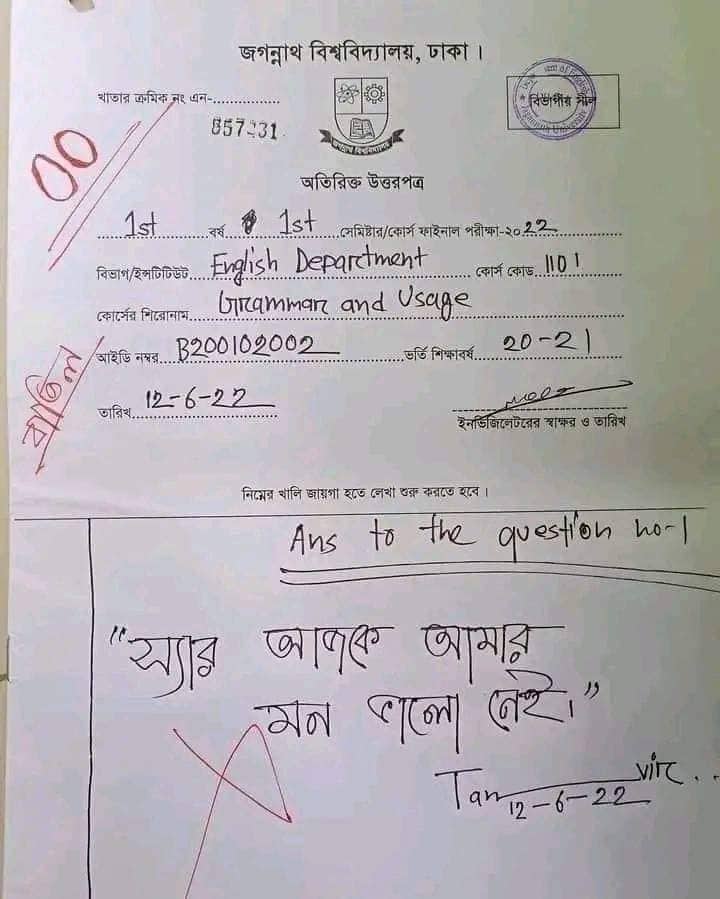 জগন্নাথ বিশ্ববিদ্যালয়, ঢাকা ।
খাতার ক্রমিক নং এন-................
857231
বিভাগীয় সীল
00
অতিরিক্ত উত্তরপত্র
1st বর্ষ 1st সেমিষ্টার/কোর্স ফাইনাল পরীক্ষা-২০22
বিভাগ/ইন্সটিটিউট English Department কোর্স কোড 1101
কোর্সের শিরোনাম Grammar and Usage
আইডি নম্বর B200102002 ভর্তি শিক্ষাবর্ষ 20-21
বাতিল
তারিখ 12-6-22
ইনভিজিলেটরের স্বাক্ষর ও তারিখ
নিম্নের খালি জায়গা হতে লেখা শুরু করতে হবে ।
Ans to the question no-1
"স্যার আজকে আমার
মন ভালো নেই।"
Tanvir
12-6-22